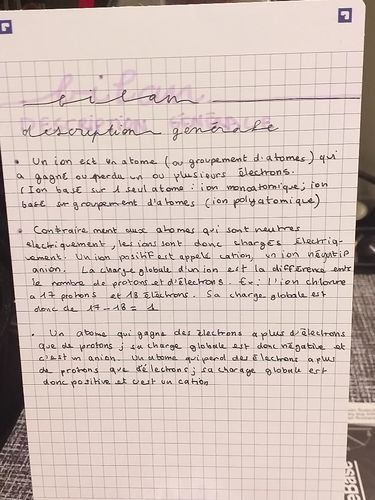 bilan
description générale
• Un ion est un atome (ou groupement d'atomes) qui
a gagné ou perdu un ou plusieurs électrons.
(Ion basé sur 1 seul atome : ion monoatomique ; ion
basé sur groupement d'atomes (ion polyatomique)
• Contrairement aux atomes qui sont neutres
électriquement, les ions sont donc chargés électriq-
uement. Un ion positif est appelé cation, un ion négatif
anion. La charge globale d'un ion est la différence entre
le nombre de protons et d'électrons. Ex : l'ion chlorure
a 17 protons et 18 électrons. Sa charge globale est
donc de 17 - 18 = 1
• Un atome qui gagne des électrons a plus d'électrons
que de protons ; sa charge globale est donc négative et
c'est un anion. Un atome qui perd des électrons a plus
de protons que d'électrons ; sa charage globale est
donc positive et c'est un cation
eBase